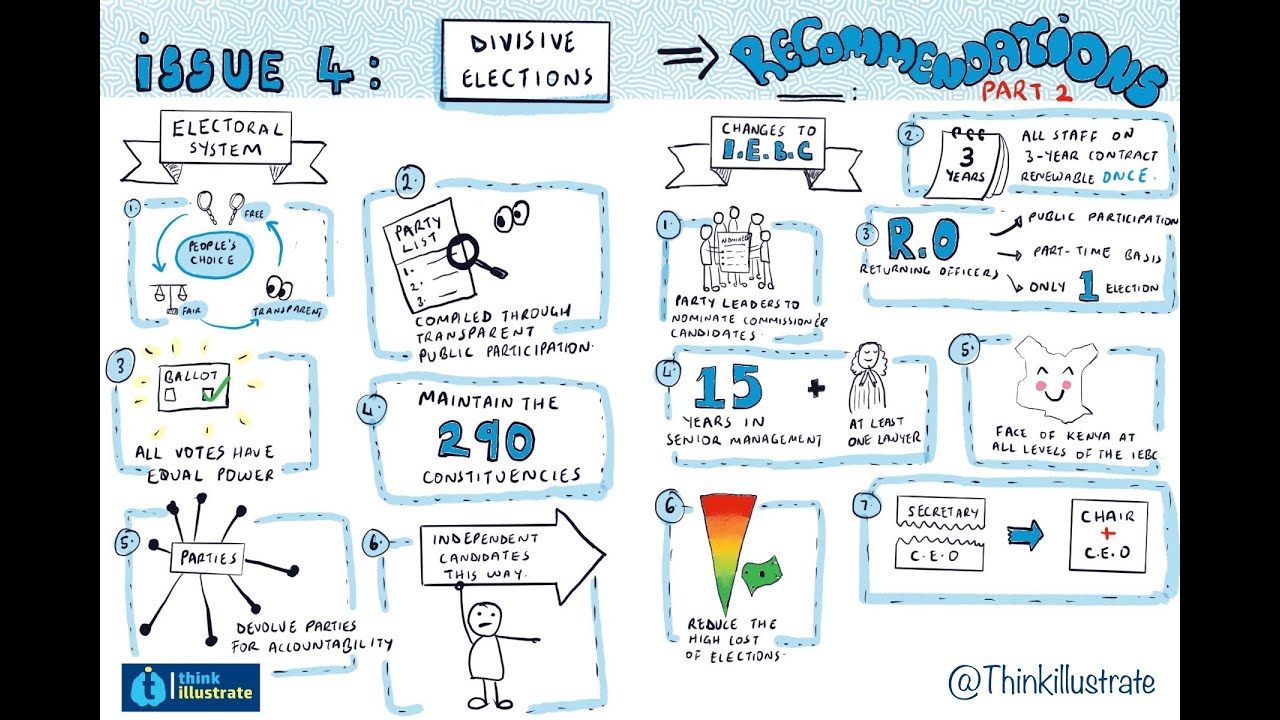 ISSUE 4:
DIVISIVE
ELECTIONS
RECOMMENDATIONS
PART 2
ELECTORAL
SYSTEM
1.
FREE
PEOPLE'S
CHOICE
FAIR
TRANSPARENT
2.
PARTY
LIST
1.
2.
3.
COMPILED THROUGH
TRANSPARENT
PUBLIC PARTICIPATION.
3
BALLOT
ALL VOTES HAVE
EQUAL POWER
4.
MAINTAIN THE
290
CONSTITUENCIES
5.
PARTIES
DEVOLVE PARTIES
FOR ACCOUNTABILITY
6.
INDEPENDENT
CANDIDATES
THIS WAY.
CHANGES TO
I.E.B.C
1.
NOMINEE
PARTY LEADERS TO
NOMINATE COMMISSIONER
CANDIDATES.
2.
3
YEARS
ALL STAFF ON
3-YEAR CONTRACT
RENEWABLE ONCE.
3.
R.O
RETURNING OFFICERS
PUBLIC PARTICIPATION
PART-TIME BASIS
ONLY 1 ELECTION
4.
15
YEARS IN
SENIOR MANAGEMENT
+
AT LEAST
ONE LAWYER
5.
FACE OF KENYA AT
ALL LEVELS OF THE IEBC
6.
REDUCE THE
HIGH LOST
OF ELECTIONS.
7.
SECRETARY
C.E.O
CHAIR
+
C.E.O
t think
illustrate
@Thinkillustrate